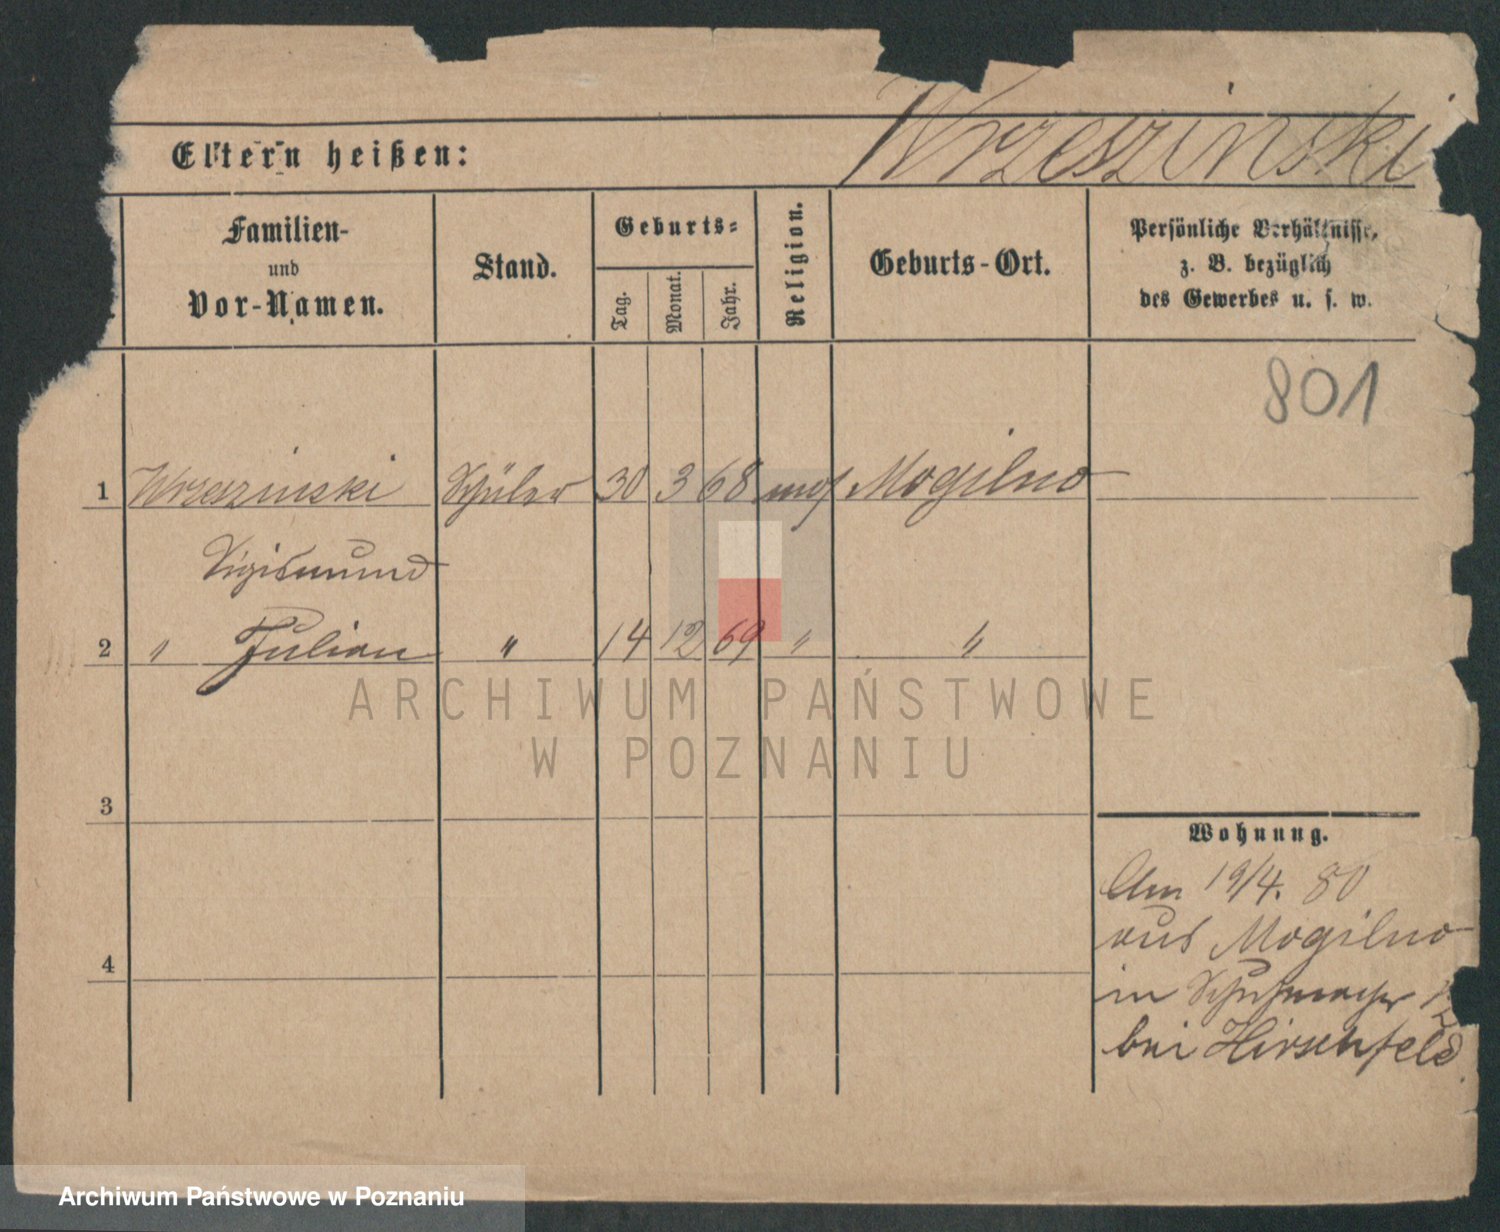 Wrzeszinski
Eltern heißen:
Familien-
und
Vor-Namen.
Stand.
Geburts-
Tag.
Monat.
Jahr.
Religion.
Geburts-Ort.
Persönliche Verhältnisse,
z. B. bezüglich
des Gewerbes u. s. w.
801
1 Wrzeszinski Schüler 30 3 68 mos Mogilno
Sigismund
2 " Julian " 14 12 69 " "
3
4
Wohnung.
Am 19/4. 80
aus Mogilno
in Schuhmacher
bei Hirschfeld
ARCHIWUM PAŃSTWOWE
W POZNANIU
Archiwum Państwowe w Poznaniu